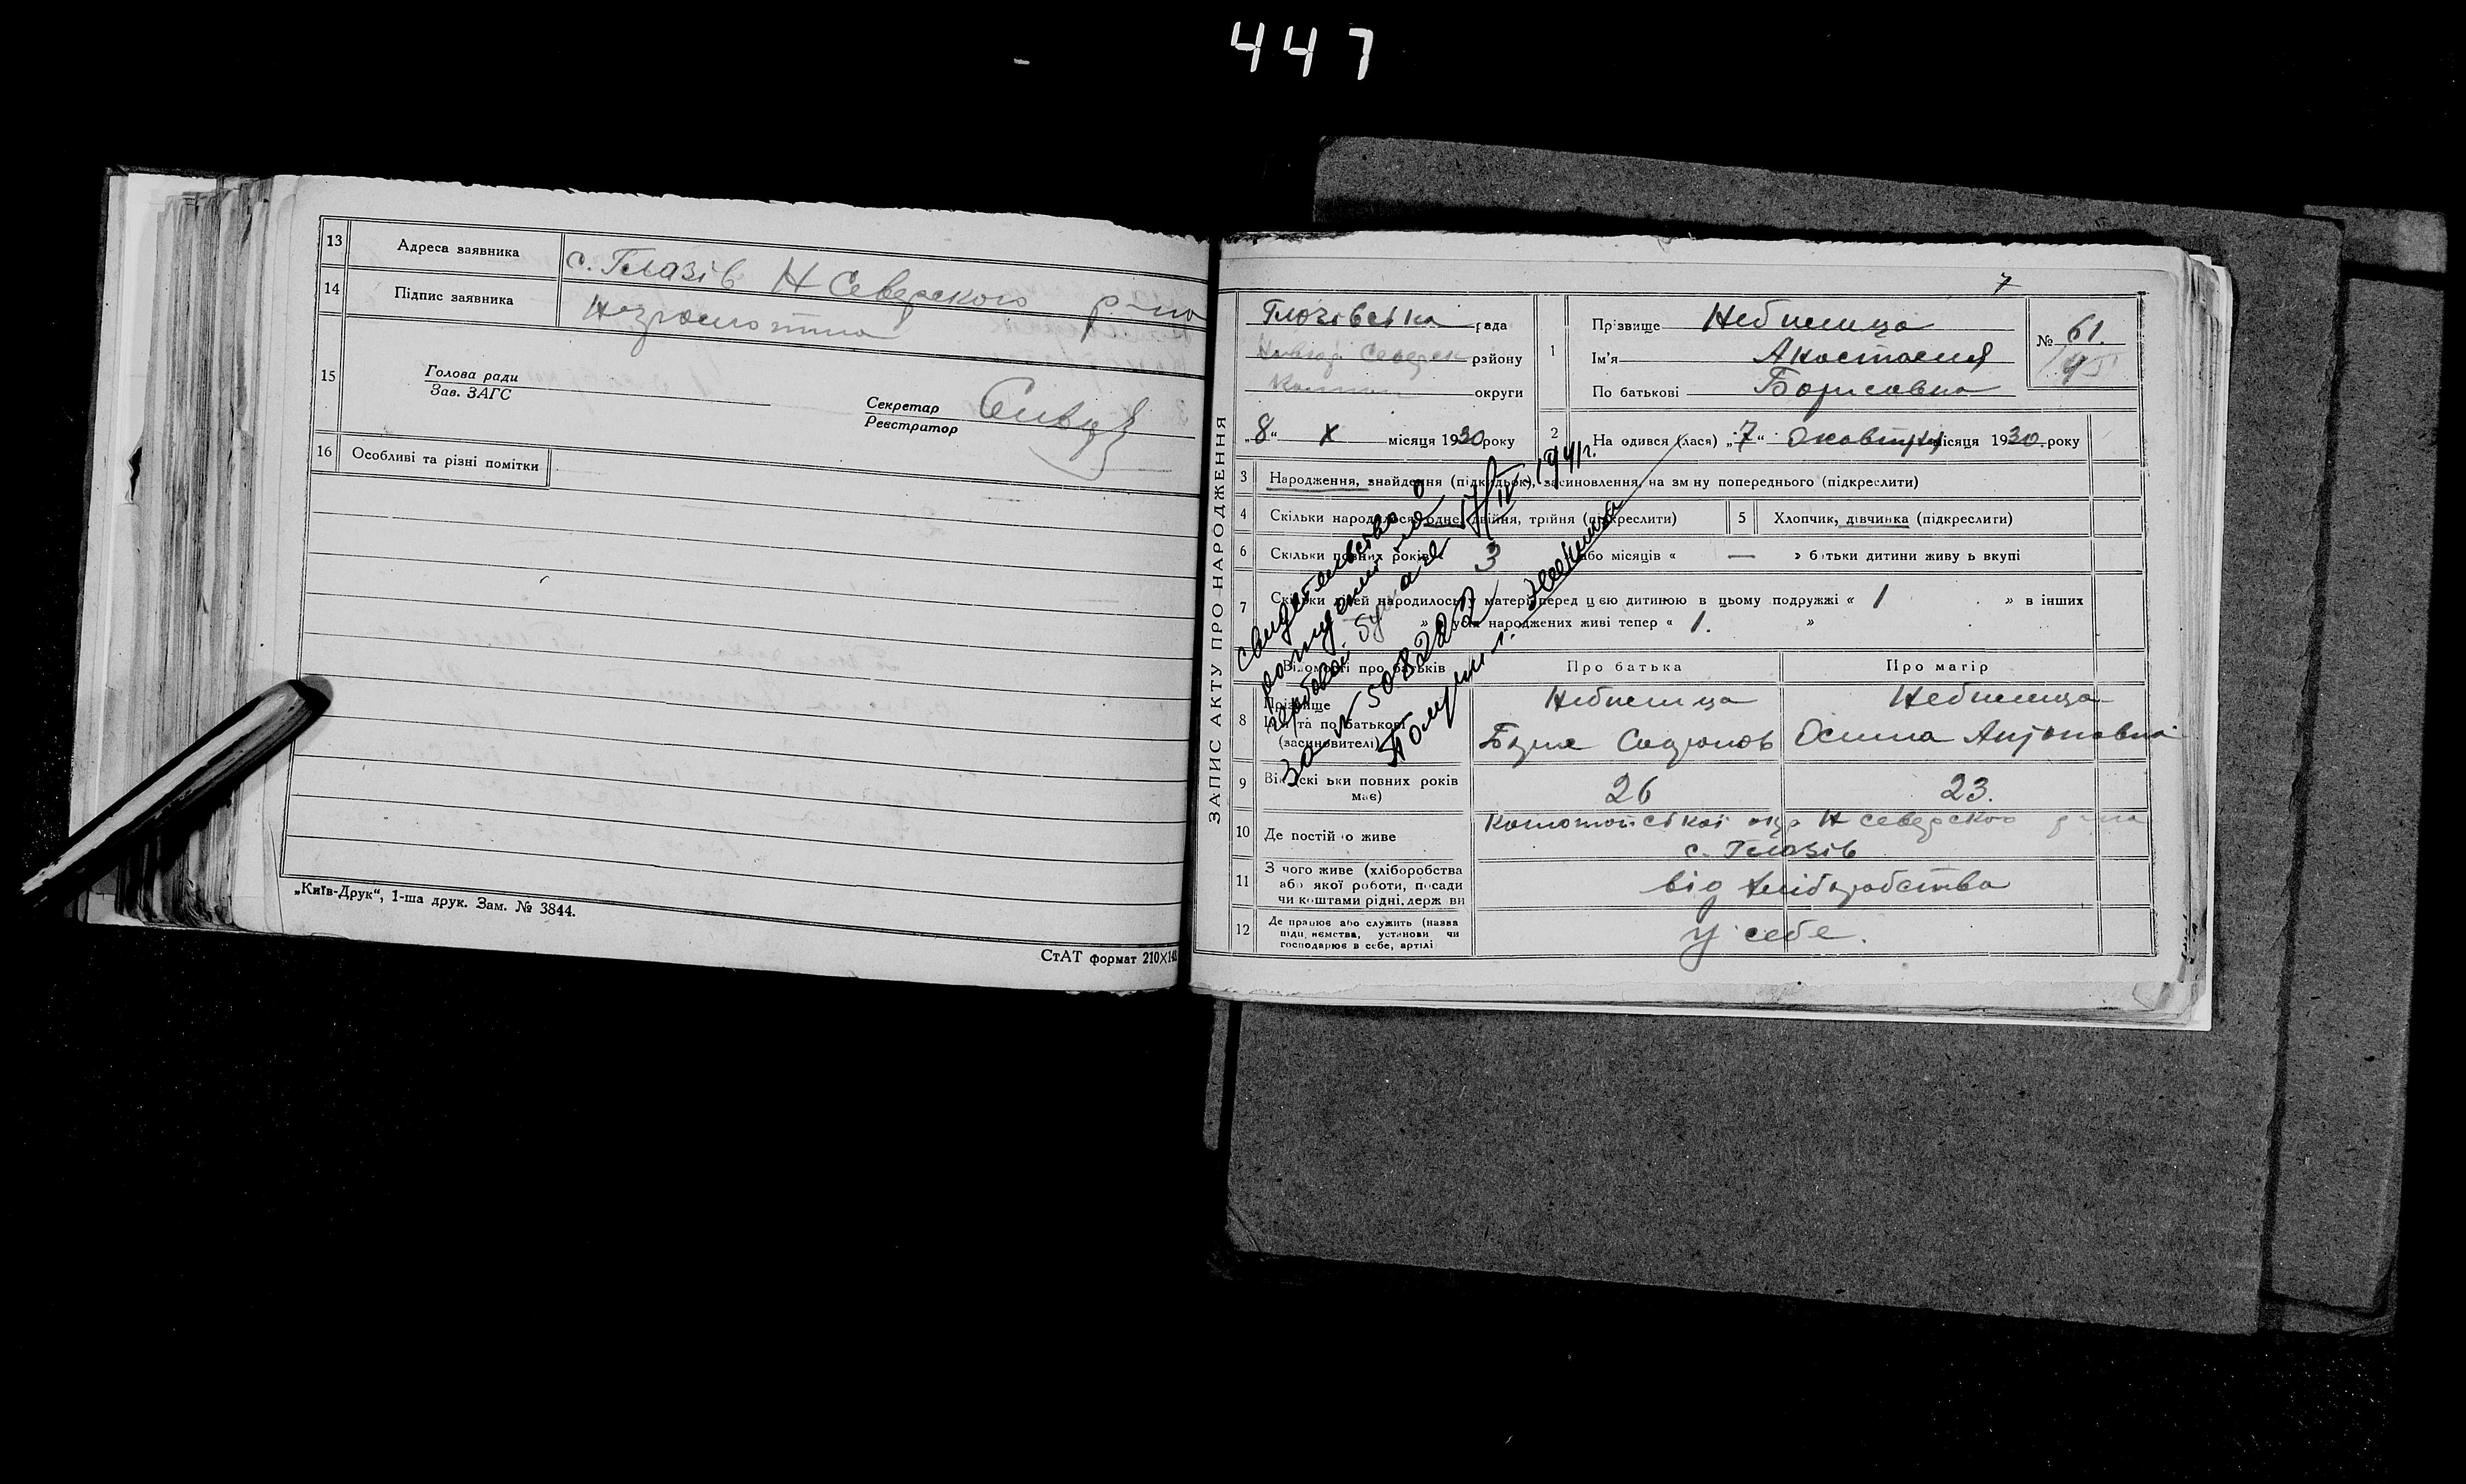 447
13 Адреса заявника с. Глазів Н Северского р-на
14 Підпис заявника
15 Голова ради
Зав. ЗАГС
Секретар
Реєстратор
16 Особливі та різні помітки
„Київ-Друк“, 1-ша друк. Зам. № 3844.
СтАТ формат 210×14
7
ЗАПИС АКТУ ПРО НАРОДЖЕННЯ
Глазівська рада
Северск району
округи
„8“ X місяця 1930 року
1 Прізвище Небилица
Ім'я Анастасия
По батькові Борисовна
№ 61.
2 На одився (лася) „7“ Октября місяця 1930 року
3 Народження, знайдення (підкидьок), засиновлення, на зміну попереднього (підкреслити)
4 Скільки народилося: одне, двійня, трійня (підкреслити)
5 Хлопчик, дівчинка (підкреслити)
6 Скільки повних років 3 або місяців « — » батьки дитини живуть вкупі
7 Скільки дітей народилось у матері перед цією дитиною в цьому подружжі « 1 » в інших
» усіх народжених живі тепер « 1. »
Відомості про батьків
Про батька
Про матір
8 Прізвище
Ім'я та по батькові
(засиновителі)
Небилица
Небилица
9 Вік (скільки повних років має)
26
23.
10 Де постійно живе
окр Н Северского р-на
с. Глазів
11 З чого живе (хліборобства або якої роботи, посади чи коштами рідні, держави
від хліборобства
12 Де працює або служить (назва підприємства, установи чи господарює в себе, артілі
у себе.
свидетельство о
рождении
гербовой бумаге 17/IV 1941г.
за № 508222